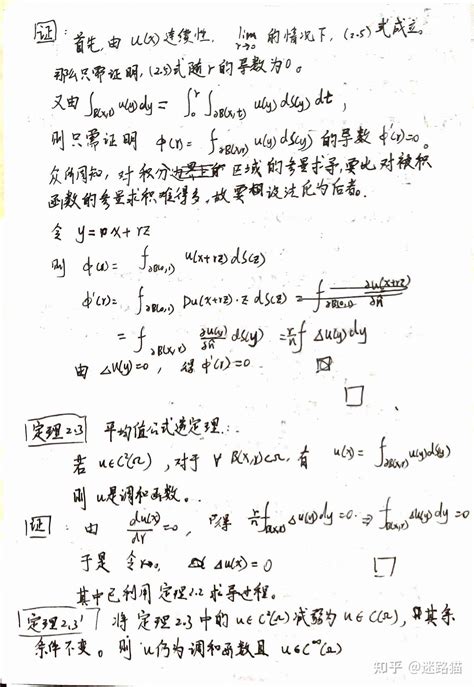 证: 首先,由 u(x) 连续性, lim r→0 的情况下, (2.5) 式成立。
那么只需证明, (2.5)式随 r 的导数为0。
又由 ∫_{B(x,r)} u(y)dy = ∫_0^r ∫_{∂B(x,t)} u(y) dS(y) dt,
则只需证明 φ(r) = ⨍_{∂B(x,r)} u(y) dS(y) 的导数 φ'(r)=0。
众所周知, 对积分区域的参量求导, 要比对被积
函数的参量求积难得多, 故要想设法化为后者。
令 y = x + rz
则 φ(r) = ⨍_{∂B(0,1)} u(x+rz) dS(z)
φ'(r) = ⨍_{∂B(0,1)} Du(x+rz)·z dS(z) = ⨍_{∂B(0,1)} ∂u(x+rz)/∂n
= ⨍_{∂B(x,r)} ∂u(y)/∂n dS(y) = r/n ⨍ Δu(y)dy
由 Δu(y)=0, 得 φ'(r)=0
定理2.3 平均值公式逆定理:
若 u∈C²(Ω), 对于 ∀ B(x,r)⊂Ω, 有 u(x) = ⨍_{∂B(x,r)} u(y)dS(y)
则 u是调和函数。
证: 由 du(x)/dr = 0, 得 r/n ⨍_{B(x,r)} Δu(y)dy = 0 ⇒ ⨍_{B(x,r)} Δu(y)dy = 0
于是 令 r→0, Δu(x) = 0
其中已利用定理2.2 求导过程。
定理2.3' 将 定理2.3 中的 u∈C²(Ω) 减弱为 u∈C(Ω), 其余
条件不变。则 u仍为调和函数且 u∈C^∞(Ω)
知乎 @迷路猫